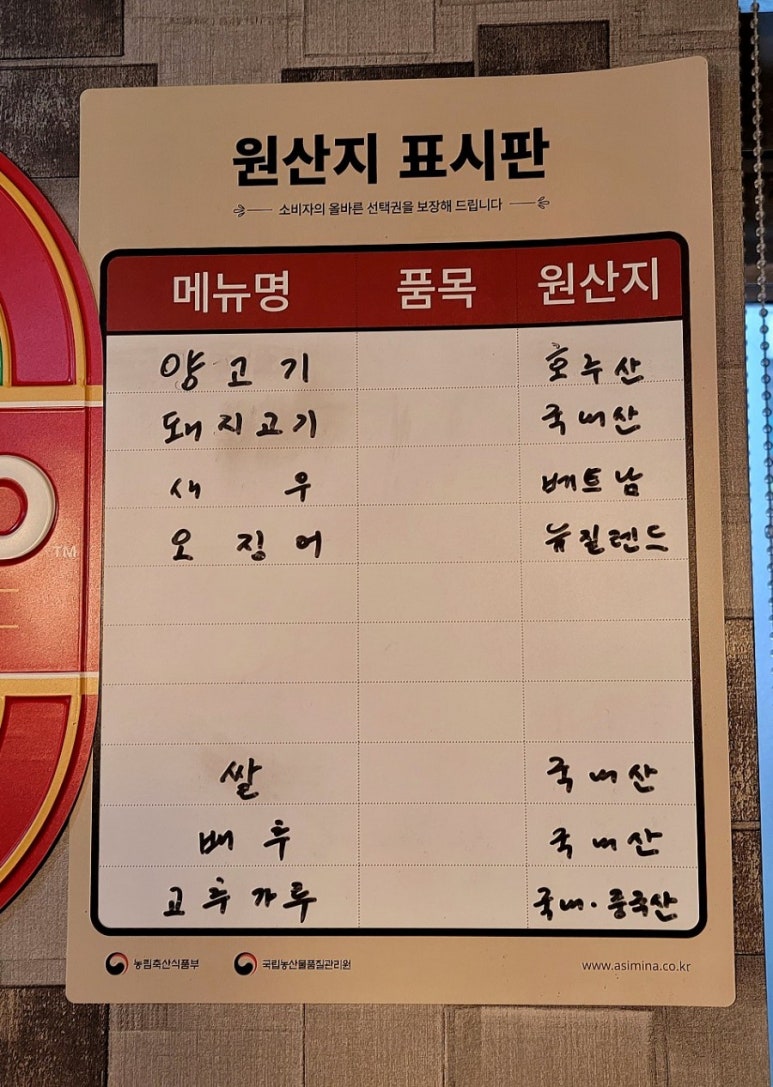 원산지 표시판
소비자의 올바른 선택권을 보장해 드립니다
메뉴명 품목 원산지
양고기 호주산
돼지고기 국내산
새우 베트남
오징어 뉴질렌드
쌀 국내산
배추 국내산
고추가루 국내·중국산
농림축산식품부 국립농산물품질관리원 www.asimina.co.kr
O
TM